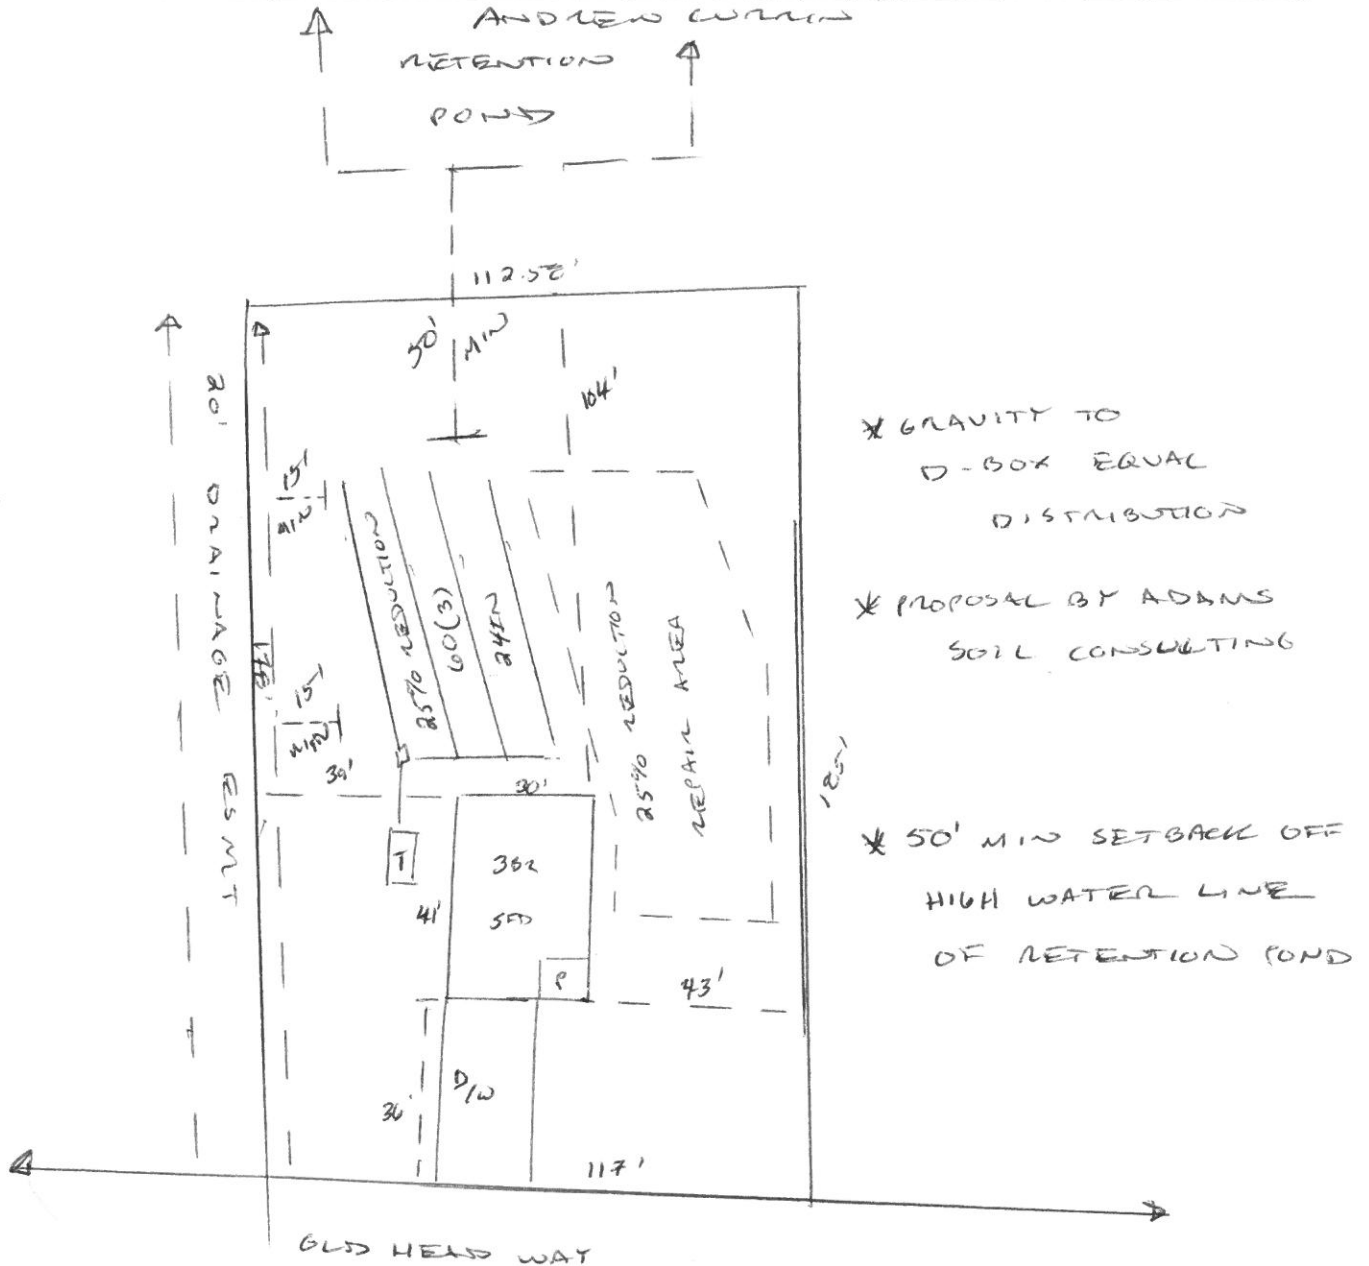 ANDREW CURRIN
RETENTION
POND
112.58'
50' MIN
104'
20' DRAINAGE ESMT
15'
MIN
25% REDUCTION
60(3)
24IN
178'
15'
MIN
25% REDUCTION
REPAIR AREA
30'
T
3BR
SFD
P
41'
43'
185'
36'
D/W
117'
OLD HEAD WAY
* GRAVITY TO
D-BOX EQUAL
DISTRIBUTION
* PROPOSAL BY ADAMS
SOIL CONSULTING
* 50' MIN SETBACK OFF
HIGH WATER LINE
OF RETENTION POND